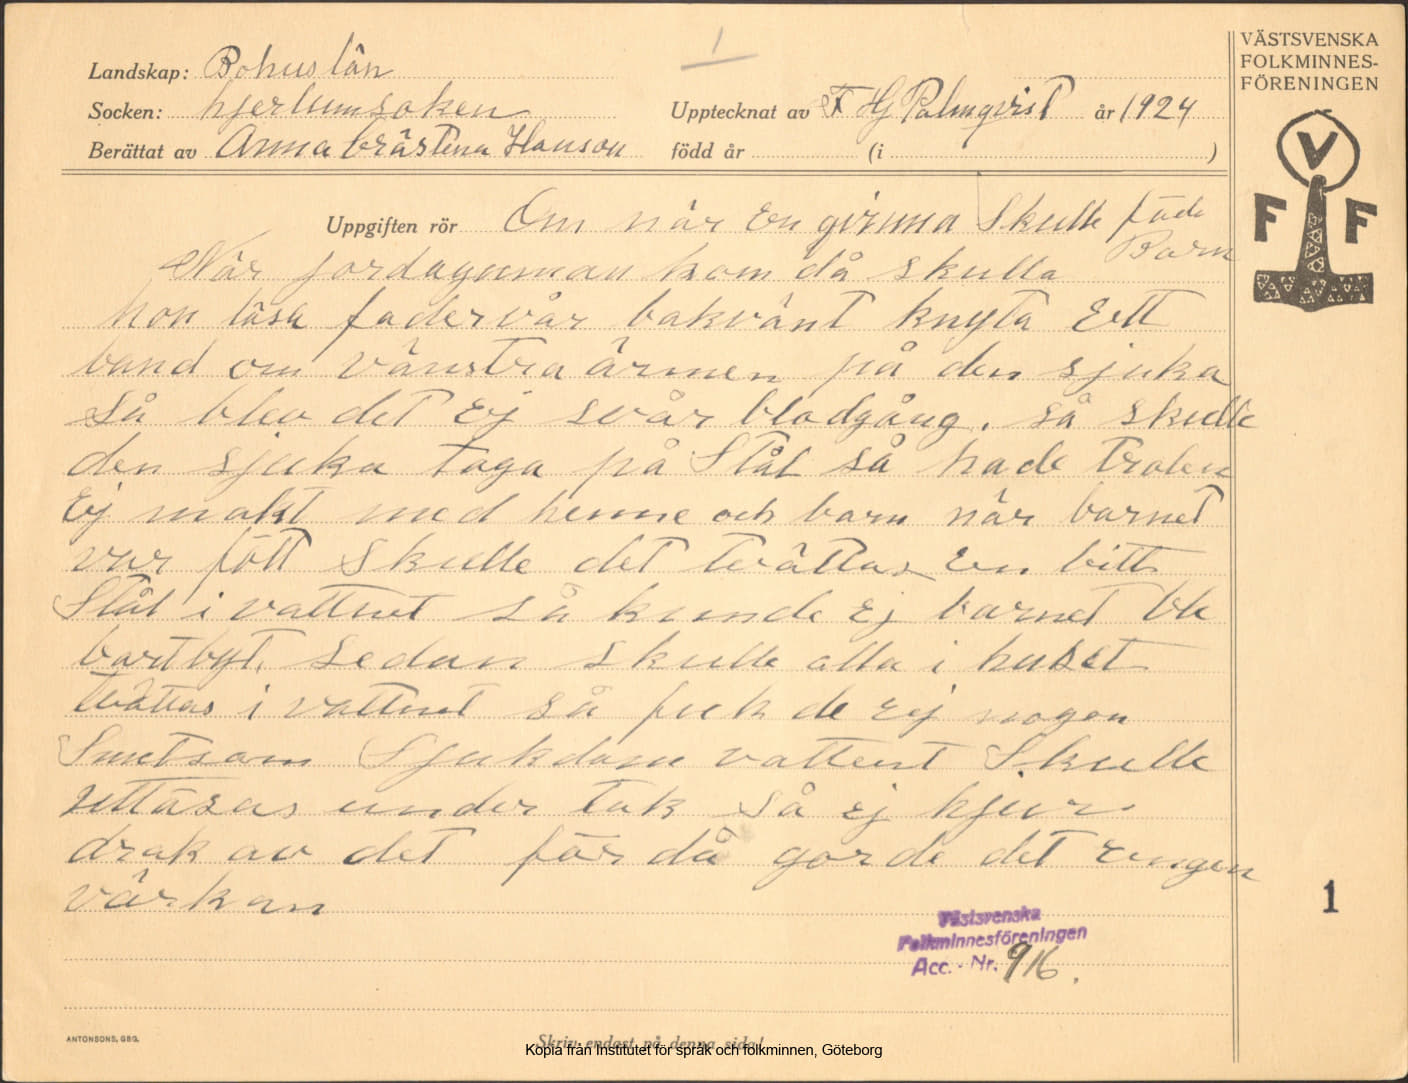 1
VÄSTSVENSKA
FOLKMINNES-
FÖRENINGEN
V
F F
Landskap: Bohuslän
Socken: hjerlumsoken
Upptecknat av F Hj Palmqvist år 1924
Berättat av Anna Crästena Hanson född år (i )
Uppgiften rör Om när En qvinna Skulle föda
Barn
När jordagumman kom då skulla
hon läsa fadervår bakvänt knyta Ett
band om vänstra ärmen på den sjuka
Så blev det Ej svår blodgång, så skulle
den sjuka taga på Stål så hade trolen
Ej makt med henne och barn när barnet
var fött Skulle det tvättas En bitt
Stål i vattnet så kunde Ej barnet ble
bortbyt. Sedan skulle alla i huset
tvättas i vattnet så feck de Ej nogon
Smetsam Sjukdom vattent Skulle
under tak Så ej kjur
drak av det för då gorde det engen
värkan
1
Västsvenska
Folkminnesföreningen
Acc. - Nr. 916.
ANTONSONS, GBG.
Skriv endast på denna sida!
Kopia från Institutet för språk och folkminnen, Göteborg